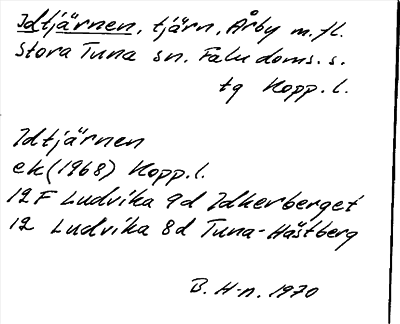 Idtjärnen, tjärn, Årby m.fl.
Stora Tuna sn. Falu doms. s.
tg Kopp. l.
Idtjärnen
ek (1968) Kopp. l.
12F Ludvika 9d Idkerberget
12 Ludvika 8d Tuna-Hästberg
B. H-n. 1970